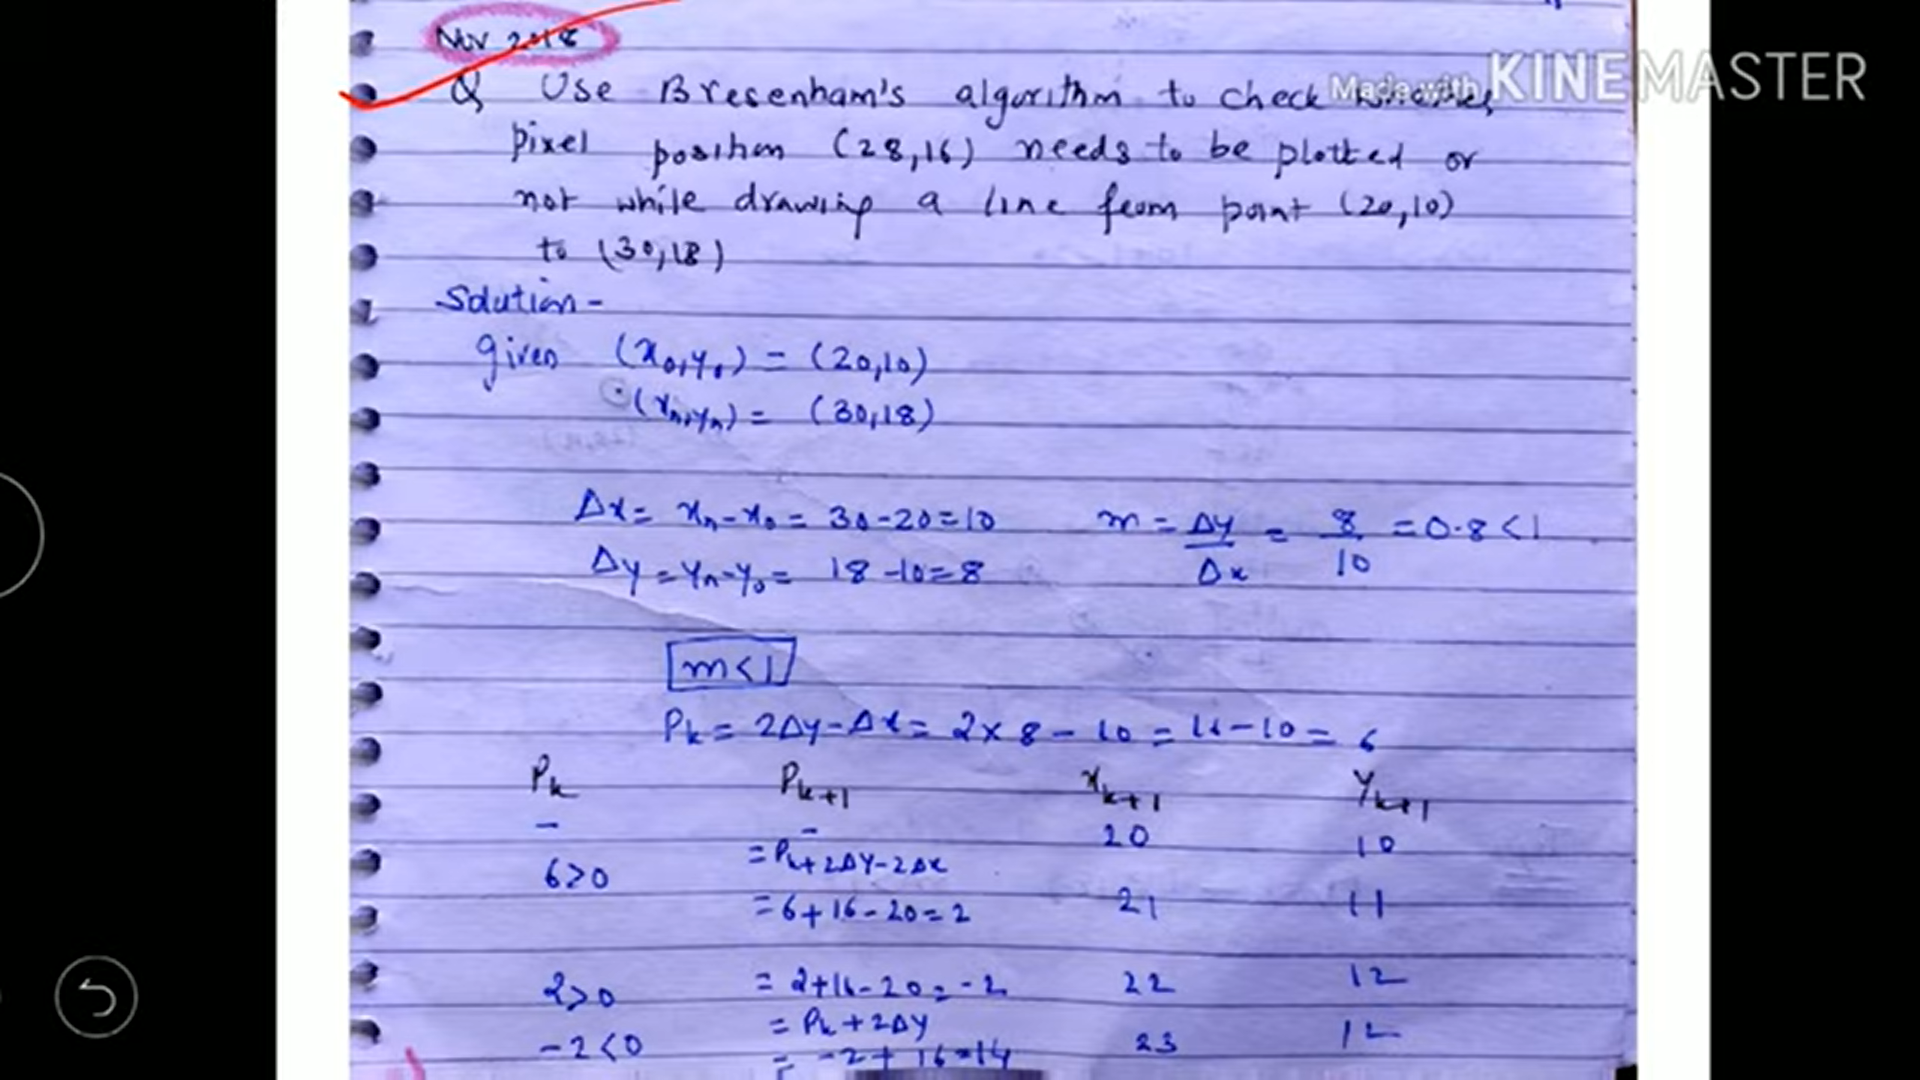 Nov 2018
Made with KINEMASTER
Q Use Bresenham's algorithm to check
pixel position (28,16) needs to be plotted or
not while drawing a line from point (20,10)
to (30,18)
Solution -
given (x0,y0) = (20,10)
(xn,yn) = (30,18)
Δx = xn-x0 = 30-20=10 m = Δy/Δx = 8/10 = 0.8 < 1
Δy = yn-y0 = 18-10=8
m<1
Pk = 2Δy-Δx = 2x8-10 = 16-10 = 6
Pk Pk+1 xk+1 Yk+1
- - 20 10
6>0 = Pk+2Δy-2Δx
= 6+16-20=2 21 11
2>0 = 2+16-20=-2 22 12
= Pk+2Δy
-2<0 = -2+16=14 23 12